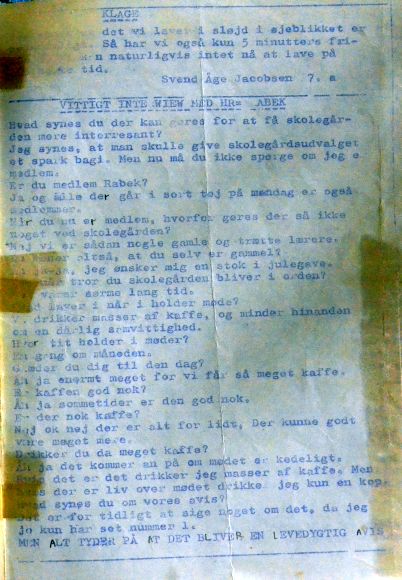 KLAGE
det vi laver i sløjd i øjeblikket er
Så har vi også kun 5 minutters fri-
en naturligvis intet nå at lave på
tid.
Svend Åge Jacobsen 7. a
VITTIGT INTE WIEW MED HR= ABEK
Hvad synes du der kan gøres for at få skolegår-
den mere interresant?
Jeg synes, at man skulle give skolegårdsudvalget
et spark bagi. Men nu må du ikke spørge om jeg e
medlem.
Er du medlem Rabek?
Ja og alle der går i sort tøj på mandag er også
medlemmer.
Når du nu er medlem, hvorfor gøres der så ikke
noget ved skolegården?
Nej vi er sådan nogle gamle og trætte lærere.
altså, at du selv er gammel?
ja-ja, jeg ønsker mig en stok i julegave.
tror du skolegården bliver i orden?
varer sørme lang tid.
laver i når i holder møde?
drikker masser af kaffe, og minder hinanden
om en dårlig samvittighed.
Hvor tit holder i møder?
En gang om måneden.
Glæder du dig til den dag?
Åh ja enormt meget for vi får så meget kaffe.
Er kaffen god nok?
Åh ja sometider er den god nok.
Er der nok kaffe?
Nej ok nej der er alt for lidt. Der kunne godt
være meget mere.
Drikker du da meget kaffe?
Åh ja det kommer an på om mødet er kedeligt.
det er det drikker jeg masser af kaffe. Men
hvis der er liv over mødet drikke jeg kun en kop.
Hvad synes du om vores avis?
Det er for tidligt at sige noget om det, da jeg
jo kun har set nummer 1.
MEN ALT TYDER PÅ AT DET BLIVER EN LEVEDYGTIG AVIS